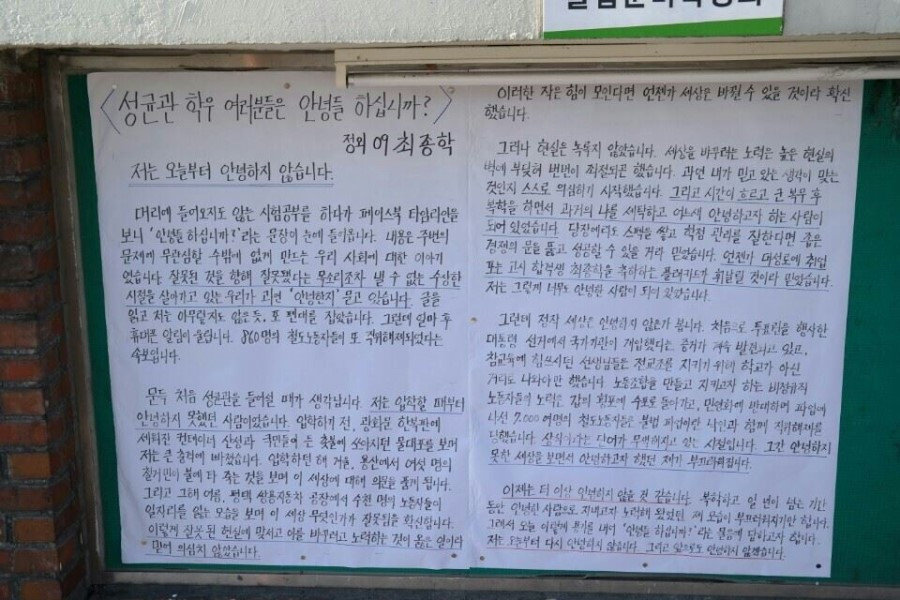 <성균관 학우 여러분들은 안녕들 하십니까?>
정외 09 최종학
저는 오늘부터 안녕하지 않습니다.
머리에 들어오지도 않는 시험공부를 하다가 페이스북 타임라인을
보니 '안녕들 하십니까?'라는 문장이 눈에 들어옵니다. 내용은 주변의
문제에 무관심할 수밖에 없게 만드는 우리 사회에 대한 이야기
였습니다. 잘못된 것을 향해 잘못됐다는 목소리조차 낼 수 없는 수상한
시절을 살아가고 있는 우리가 과연 '안녕한지' 묻고 있습니다. 글을
읽고 저는 아무렇지도 않은 듯, 또 펜대를 잡았습니다. 그런데 얼마 후
휴대폰 알림이 울립니다. 860명의 철도노동자들이 또 직위해제되었다는
속보입니다.
문득 처음 성균관을 들어설 때가 생각납니다. 저는 입학할 때부터
안녕하지 못했던 사람이었습니다. 입학하기 전, 광화문 한복판에
세워진 컨테이너 산성과 국민들이 든 촛불에 쏘아지던 물대포를 보며
저는 큰 충격에 빠졌습니다. 입학하던 해 겨울, 용산에서 여섯 명의
철거민이 불에 타 죽는 것을 보며 이 세상에 대해 의문을 품게 됩니다.
그리고 그해 여름, 평택 쌍용자동차 공장에서 수천 명의 노동자들이
일자리를 잃는 모습을 보며 이 세상 무엇인가가 잘못됨을 확신합니다.
이렇게 잘못된 현실에 맞서고 이를 바꾸려고 노력하는 것이 옳은 일이라
믿어 의심치 않았습니다.
이러한 작은 힘이 모인다면 언젠가 세상은 바뀔 수 있을 것이라 확신
했습니다.
그러나 현실은 녹록지 않았습니다. 세상을 바꾸려는 노력은 높은 현실의
벽에 부딪혀 번번이 좌절되곤 했습니다. 과연 내가 믿고 있는 생각이 맞는
것인지 스스로 의심하기 시작했습니다. 그리고 시간이 흐르고 군 복무 후
복학을 하면서 과거의 나를 세탁하고 여느새 안녕하고자 하는 사람이
되어 있었습니다. 당장에라도 스펙을 쌓고 학점 관리를 잘한다면 좁은
경쟁의 문을 뚫고 성공할 수 있을 거라 믿었습니다. 언젠가 대성로에 취업
또는 고시 합격생 최종학을 축하하는 플래카드가 휘날릴 것이라 믿었습니다.
저는 그렇게 너무도 안녕한 사람이 되어 있었습니다.
그런데 정작 세상은 안녕하지 않은가 봅니다. 처음으로 투표권을 행사한
대통령 선거에서 국가기관이 개입했다는 증거가 계속 발견되고 있고,
참교육에 힘쓰시던 선생님들은 전교조를 지키기 위해 학교가 아닌
거리로 나와야만 했습니다. 노동조합을 만들고 지키고자 하는 비정규직
노동자들의 노력은 갑의 횡포에 수포로 돌아가고, 민영화에 반대하며 파업에
나선 7,000여명의 철도노동자들은 불법 파업이란 낙인과 함께 직위해제를
당했습니다. 상식이라는 단어가 무색해지고 있는 시절입니다. 그간 안녕하지
못한 세상을 보면서 안녕하고자 했던 제가 부끄러워집니다.
이제는 더 이상 안녕하지 않을 것 같습니다. 복학하고 일 년이 넘는 기간
동안 안녕한 사람으로 지내고자 노력해 왔었던 제 모습이 부끄러워지기만 합니다.
그래서 오늘 이렇게 용기를 내어 '안녕들 하십니까?'라는 물음에 답하고자 합니다.
저는 오늘부터 다시 안녕하지 않습니다. 그리고 앞으로도 안녕하지 않겠습니다.